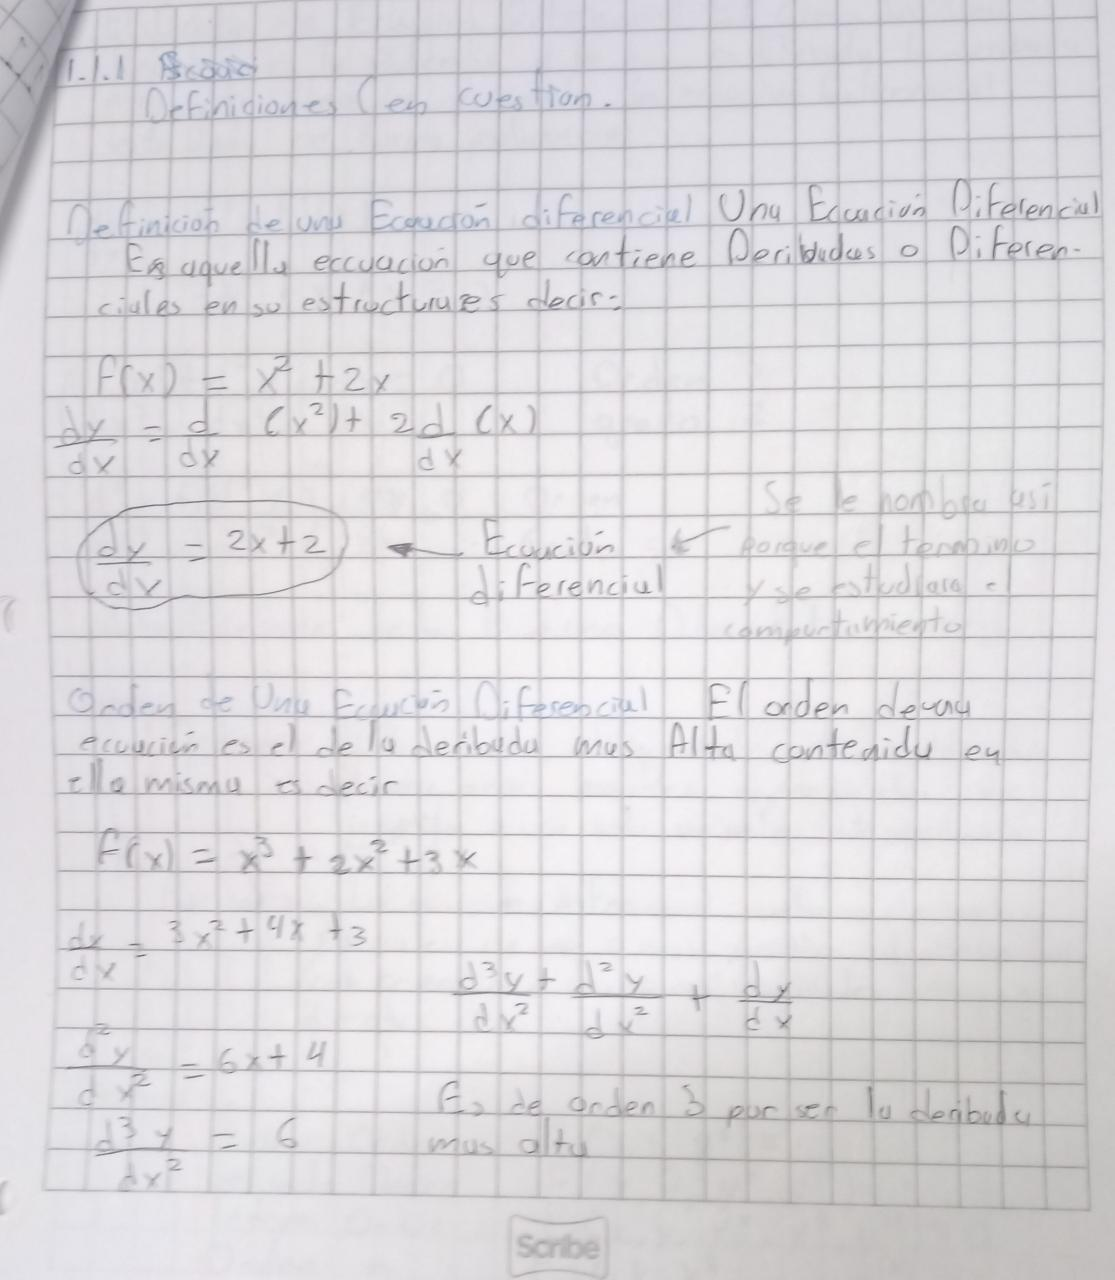 1.1.1
Definiciones (en cuestion.
Definicion de una Ecuacion diferencial Una Ecuación Diferencial
Es aquella eccuacion que contiene Deribadas o Diferen-
ciales en su estructura es decir:
f(x) = x² + 2x
dy/dx = d/dx (x²) + 2 d/dx (x)
dy/dx = 2x+2 ← Ecuación diferencial ← Se le nombra asi
porque el termino
y se estudiara e
comportamiento
Orden de Una Ecuación Diferencial El orden de una
ecuación es el de la deribada mas Alta contenida en
ella misma es decir
f(x) = x³ + 2x² + 3x
dy/dx = 3x² + 4x + 3
d³y/dx² + d²y/dx² + dy/dx
d²y/dx² = 6x + 4
Es de orden 3 por ser la deribada
d³y/dx² = 6
mas alta
Scribe